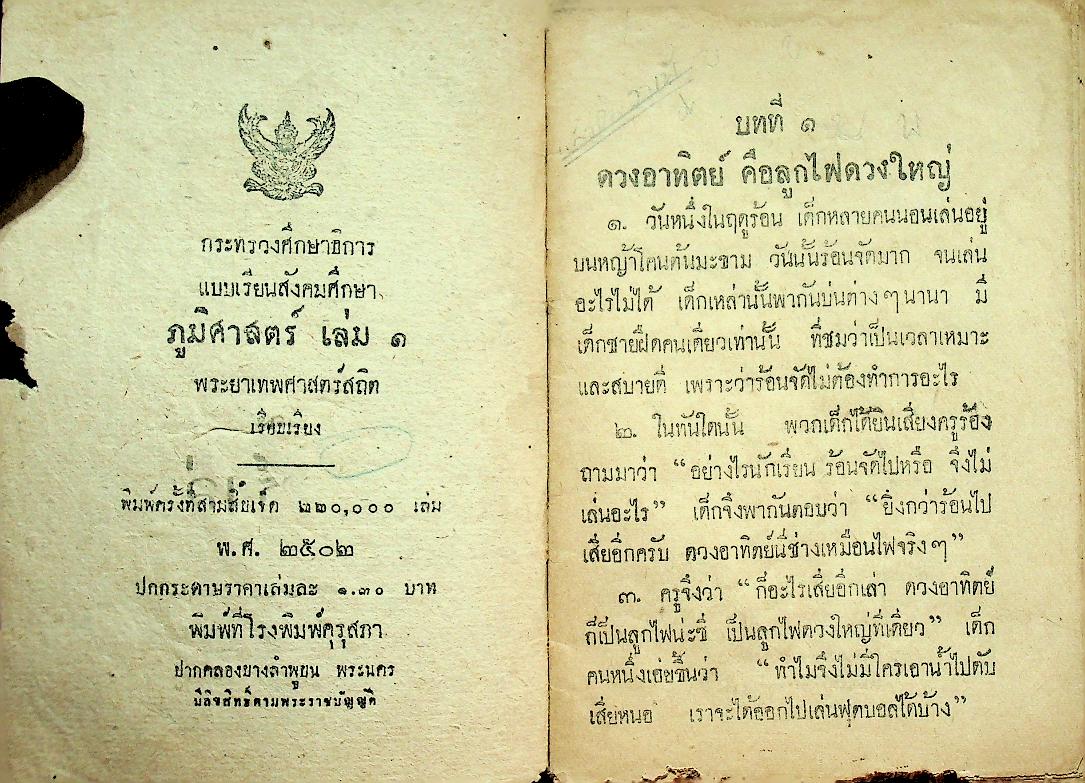 กระทรวงศึกษาธิการ
แบบเรียนสังคมศึกษา
ภูมิศาสตร์ เล่ม ๑
พระยาเทพศาสตร์สถิต
เรียบเรียง
พิมพ์ครั้งที่สามสิบเจ็ด ๒๒๐,๐๐๐ เล่ม
พ.ศ. ๒๕๐๒
ปกกระดาษราคาเล่มละ ๑.๓๐ บาท
พิมพ์ที่โรงพิมพ์คุรุสภา
ปากคลองบางลำพูบน พระนคร
มีลิขสิทธิ์ตามพระราชบัญญัติ
บทที่ ๑
ดวงอาทิตย์ คือลูกไฟดวงใหญ่
๑. วันหนึ่งในฤดูร้อน เด็กหลายคนนอนเล่นอยู่
บนหญ้าโคนต้นมะขาม วันนั้นร้อนจัดมาก จนเล่น
อะไรไม่ได้ เด็กเหล่านั้นพากันบ่นต่าง ๆ นานา มี
เด็กชายฝืดคนเดียวเท่านั้น ที่ชมว่าเป็นเวลาเหมาะ
และสบายดี เพราะว่าร้อนจัดไม่ต้องทำการอะไร
๒. ในทันใดนั้น พวกเด็กได้ยินเสียงครูร้อง
ถามมาว่า “อย่างไรนักเรียน ร้อนจัดไปหรือ จึงไม่
เล่นอะไร” เด็กจึงพากันตอบว่า “ยิ่งกว่าร้อนไป
เสียอีกครับ ดวงอาทิตย์นี่ช่างเหมือนไฟจริง ๆ”
๓. ครูจึงว่า “ก็อะไรเสียอีกเล่า ดวงอาทิตย์
ก็เป็นลูกไฟน่ะซี เป็นลูกไฟดวงใหญ่ทีเดียว” เด็ก
คนหนึ่งเอ่ยขึ้นว่า “ทำไมจึงไม่มีใครเอาน้ำไปดับ
เสียหนอ เราจะได้ออกไปเล่นฟุตบอลได้บ้าง”